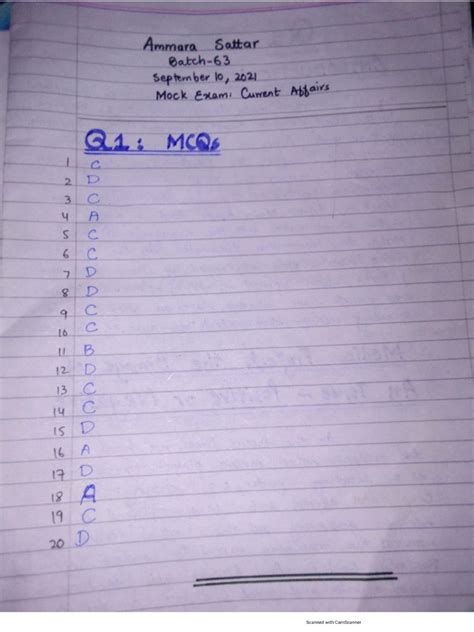 Ammara Sattar
Batch-63
September 10, 2021
Mock Exam: Current Affairs
Q1: MCQs
1 C
2 D
3 C
4 A
5 C
6 C
7 D
8 D
9 C
10 C
11 B
12 D
13 C
14 C
15 D
16 A
17 D
18 A
19 C
20 D
Scanned with CamScanner